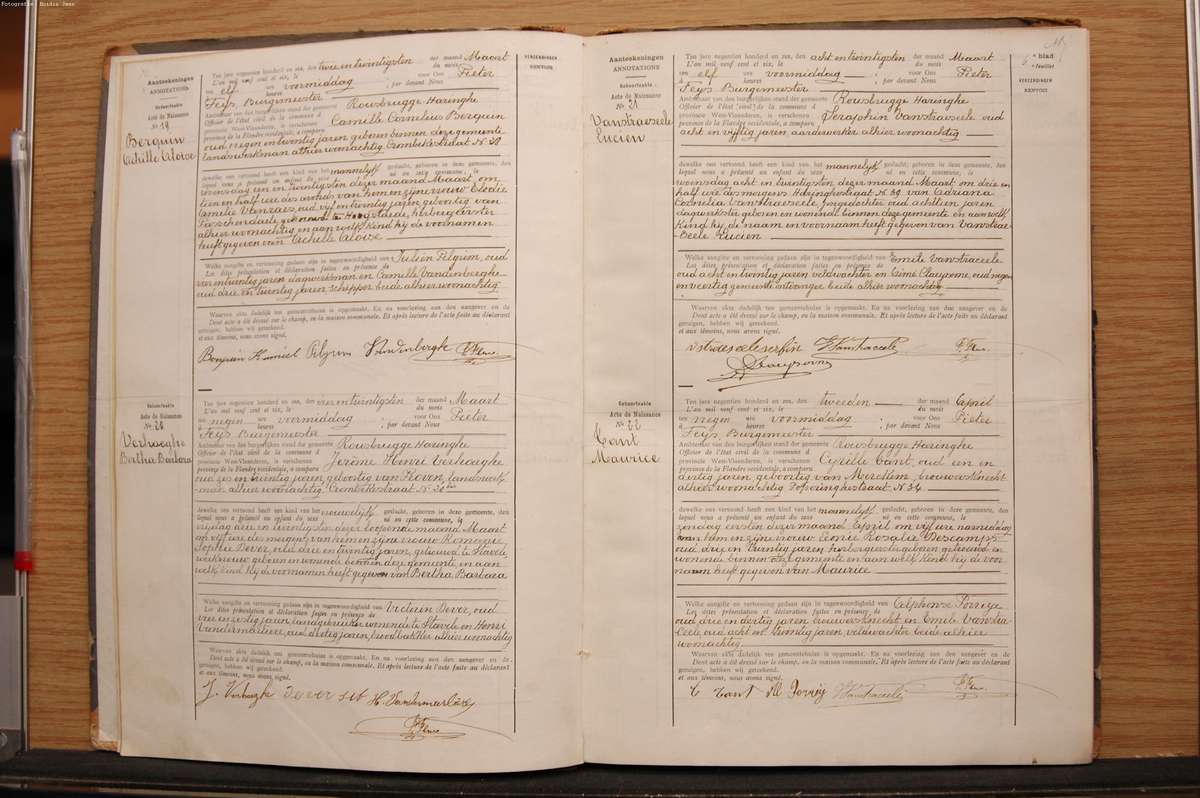 Fotografie: Boidin Jean
Aanteekeningen
ANNOTATIONS
Geboorteakte
Acte de Naissance
Nº 19
Berquin
Achille Aloise
Ten jare negentien honderd en zes, den twee en twintigsten der maand Maart
L'an mil neuf cent et six, le du mois
ten elf ure vormiddag voor Ons Pieter
à heures ; par devant Nous
Feys, Burgemeester
Ambtenaar van den burgerlijken stand der gemeente Rousbrugge Haringhe
Officier de l'état civil de la commune d
provincie West-Vlaanderen, is verschenen Camille Cornelius Berquin
province de la Flandre occidentale, a comparu
oud negen en twintig jaren geboren binnen deze gemeente
landswerkman alhier woonachtig Crombekestraat N. 38
dewelke ons vertoond heeft een kind van het mannelijk geslacht, geboren in deze gemeente, den
lequel nous a présenté un enfant du sexe né en cette commune, le
woensdag een en twintigsten dezer maand Maart om
tien en half ure des avonds van hem en zijne vrouw Elodie
Camelie oud vijf en twintig jaren geboortig van
herbergierster
alhier woonachtig en aan welk kind hij de voornamen
heeft gegeven van Achille Aloise
Welke aangifte en vertooning gedaan zijn in tegenwoordigheid van Julien Pilgrim, oud
Les dites présentation et déclaration faites en présence de
vier en twintig jaren dagwerkman en Camille Vandenberghe
oud drie en twintig jaren schepper beide alhier woonachtig
Waarvan akte dadelijk ten gemeentehuize is opgemaakt. En na voorlezing aan den aangever en de
Dont acte a été dressé sur le champ, en la maison communale. Et après lecture de l'acte faite au déclarant
getuigen, hebben wij geteekend.
et aux témoins, nous avons signé.
Berquin Kamiel Pilgrim Vandenberghe P. Feys
VERZENDINGEN
RENVOIS
Geboorteakte
Acte de Naissance
Nº 20
Verhaeghe
Bertha Barbara
Ten jare negentien honderd en zes, den vier en twintigsten der maand Maart
L'an mil neuf cent et six, le du mois
ten negen ure vormiddag voor Ons Pieter
à heures ; par devant Nous
Feys Burgemeester
Ambtenaar van den burgerlijken stand der gemeente Rousbrugge Haringhe
Officier de l'état civil de la commune d
provincie West-Vlaanderen, is verschenen Jerôme Henri Verhaeghe
province de la Flandre occidentale, a comparu
oud zes en twintig jaren, geboortig van landswerk-
man alhier woonachtig Crombekestraat N. 30
dewelke ons vertoond heeft een kind van het vrouwelijk geslacht, geboren in deze gemeente, den
lequel nous a présenté un enfant du sexe né en cette commune, le
vrijdag drie en twintigsten dezer loopende maand Maart
om vijf ure des morgens van hem en zijne vrouw Romanie
Sophie Dever, oud drie en twintig jaren, getrouwd te Stavele
werkvrouw geboren en wonende binnen deze gemeente, en aan
welk kind hij de voornamen heeft gegeven van Bertha Barbara
Welke aangifte en vertooning gedaan zijn in tegenwoordigheid van Victorin Dever, oud
Les dites présentation et déclaration faites en présence de
vier en zestig jaren, landgebruiker wonende te Stavele en Henri
Vandermarliere, oud dertig jaren, broodbakker alhier woonachtig
Waarvan akte dadelijk ten gemeentehuize is opgemaakt. En na voorlezing aan den aangever en de
Dont acte a été dressé sur le champ, en la maison communale. Et après lecture de l'acte faite au déclarant
getuigen, hebben wij geteekend.
et aux témoins, nous avons signé.
J. Verhaeghe Dever H. Vandermarliere
P. Feys
Aanteekeningen
ANNOTATIONS
Geboorteakte
Acte de Naissance
Nº 21
Vanstraeseele
Lucien
Ten jare negentien honderd en zes, den acht en twintigsten der maand Maart
L'an mil neuf cent et six, le du mois
ten elf ure vormiddag voor Ons Pieter
à heures ; par devant Nous
Feys Burgemeester
Ambtenaar van den burgerlijken stand der gemeente Rousbrugge Haringhe
Officier de l'état civil de la commune d
provincie West-Vlaanderen, is verschenen Seraphin Vanstraeseele oud
province de la Flandre occidentale, a comparu
acht en vijftig jaren, aardewerker alhier woonachtig
dewelke ons vertoond heeft een kind van het mannelijk geslacht, geboren in deze gemeente, den
lequel nous a présenté un enfant du sexe né en cette commune, le
woensdag acht en twintigsten dezer maand Maart om drie en
half ure des morgens Haringhestraat N. 39 van Adriana
Cornelia Vanstraeseele Jonggedochter oud achttien jaren
dagwerkster geboren en wonende binnen deze gemeente en aan welk
kind hij de naam en voornaam heeft gegeven van Vanstrae-
seele Lucien
Welke aangifte en vertooning gedaan zijn in tegenwoordigheid van Emile Vanstraceele
Les dites présentation et déclaration faites en présence de
oud acht en twintig jaren veldwachter en Aimé oud negen
en veertig gemeente ontvanger beide alhier woonachtig
Waarvan akte dadelijk ten gemeentehuize is opgemaakt. En na voorlezing aan den aangever en de
Dont acte a été dressé sur le champ, en la maison communale. Et après lecture de l'acte faite au déclarant
getuigen, hebben wij geteekend.
et aux témoins, nous avons signé.
E Vanstraceele P. Feys
blad
feuillet
VERZENDINGEN
RENVOIS
Geboorteakte
Acte de Naissance
Nº 22
Cant
Maurice
Ten jare negentien honderd en zes, den tweeden der maand April
L'an mil neuf cent et six, le du mois
ten negen ure vormiddag voor Ons Pieter
à heures ; par devant Nous
Feys, Burgemeester
Ambtenaar van den burgerlijken stand der gemeente Rousbrugge Haringhe
Officier de l'état civil de la commune d
provincie West-Vlaanderen, is verschenen Cyrille Cant, oud een en
province de la Flandre occidentale, a comparu
dertig jaren, geboortig van Merckem, brouwersknecht
alhier woonachtig Poperinghestraat N. 34
dewelke ons vertoond heeft een kind van het mannelijk geslacht, geboren in deze gemeente, den
lequel nous a présenté un enfant du sexe né en cette commune, le
zondag eersten dezer maand April om vijf ure namiddag
van hem en zijne vrouw Leonie Rosalie Descamps
oud drie en twintig jaren herbergierster geboren getrouwd en
wonende binnen deze gemeente en aan welk kind hij de voor
naam heeft gegeven van Maurice
Welke aangifte en vertooning gedaan zijn in tegenwoordigheid van Alphonse Porreye
Les dites présentation et déclaration faites en présence de
oud drie en dertig jaren brouwersknecht en Emile Vanstra-
ceele oud acht en twintig jaren veldwachter beide alhier
woonachtig.
Waarvan akte dadelijk ten gemeentehuize is opgemaakt. En na voorlezing aan den aangever en de
Dont acte a été dressé sur le champ, en la maison communale. Et après lecture de l'acte faite au déclarant
getuigen, hebben wij geteekend.
et aux témoins, nous avons signé.
C Cant Al Porreij E Vanstraceele P. Feys